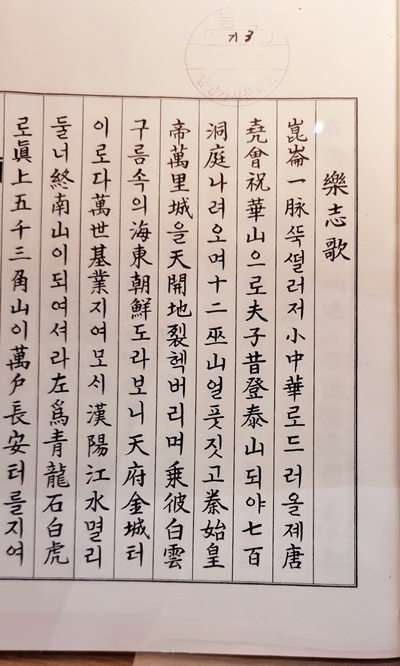 기 3
樂志歌
崑崙一脉뚝떨러저小中華로드러올졔唐
堯曾祝華山으로夫子昔登泰山되야七百
洞庭나려오며十二巫山얼풋짓고秦始皇
帝萬里城을天開地裂헥버리며乘彼白雲
구름속의海東朝鮮도라보니天府金城터
이로다萬世基業지여모시漢陽江水멀리
둘너終南山이되여셔라左爲青龍石白虎
로眞上五千三角山이萬戶長安터를지여